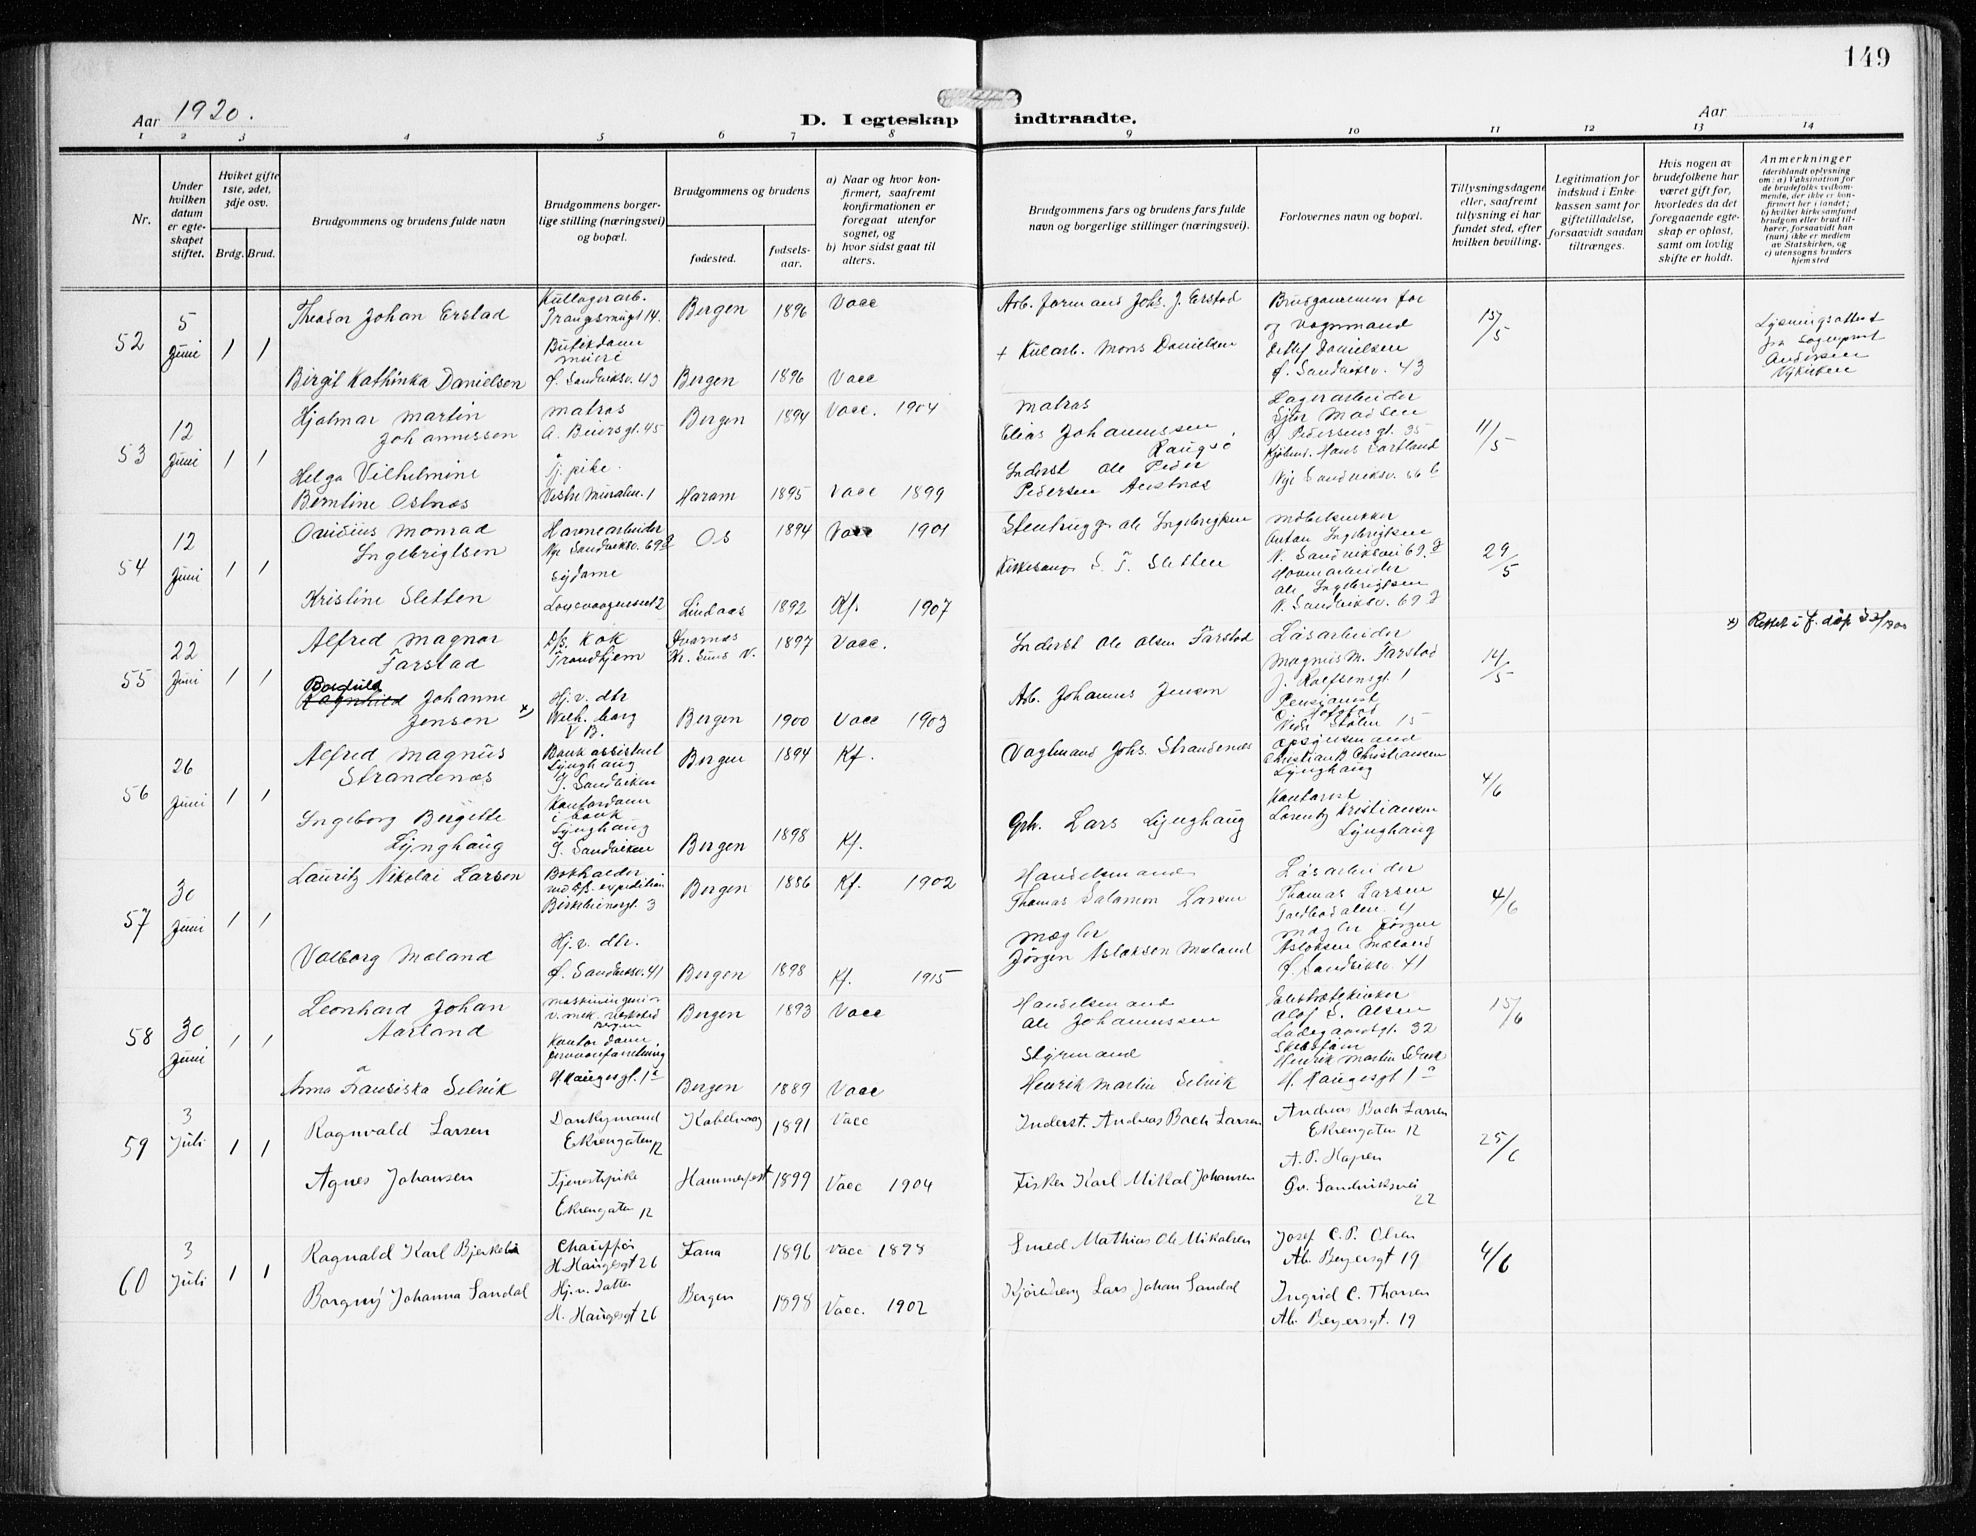 149
Aar 1920.
D. I egteskap indtraadte.
Aar
1 2 3 4 5 6 7 8 9 10 11 12 13 14
Nr.
Under hvilken datum er egte-skapet stiftet.
Hviket gifte 1ste, 2det, 3dje osv.
Brdg. Brud.
Brudgommens og brudens fulde navn
Brudgommens borger-lige stilling (næringsvei) og bopæl.
Brudgommens og brudens
fødested.
fødsels-aar.
a) Naar og hvor kon-firmert, saafremt konfirmationen er foregaat utenfor sognet, og
b) hvor sidst gaat til alters.
Brudgommens fars og brudens fars fulde navn og borgerlige stillinger (næringsvei).
Forlovernes navn og bopæl.
Tillysningsdagene eller, saafremt tillysning ei har fundet sted, efter hvilken bevilling.
Legitimation for indskud i Enke-kassen samt for giftetilladelse, forsaavidt saadan tiltrænges.
Hvis nogen av brudefolkene har været gift før, hvorledes da det foregaaende egte-skap er opløst, samt om lovlig skifte er holdt.
Anmerkninger (deriblandt oplysning om: a) Vaksination for de brudefolks vedkom-mende, der ikke er kon-firmert her i landet; b) hvilket kirkesamfund brudgom eller brud til-hører, forsaavidt han (hun) ikke er medlem av Statskirken, og c) utensogns bruders hjemsted
52
5 Juni
1 1
Theodor Johan Erstad
Kullagerarb.
Trangesmugt 14.
Bergen 1896 Vacc
Arb. formand Johs. J. Erstad
Brudgommens far
og Vognmand
Detlef Danielsen
Ø. Sandviksv. 43
15/5
Lysningsattest
fra Sogneprest
Andersen
Nykirken
Birgit Kathinka Danielsen
Ø. Sandviksv. 43
Bergen 1896 Vacc
+ Kularb. Mons Danielsen
53
12 Juni
1 1
Hjalmar Martin
Johannessen
Matros
A. Beiersgt. 45
Bergen 1894 Vacc. 1904
Matros
Elias Johannessen
Lagerarbeider
Madsen
11/5
Helga Vilhelmine
Berntine Ostnæs
Tj. pike.
Vestre Muralm. 1
Haram 1895 Vacc 1899
Inderst Ole Peder
Pedersen Austnæs
Nye Sandviksv. 56 b
54
12 Juni
1 1
Ovidius Monrad
Ingebrigtsen
Havnearbeider
Nye Sandviksv. 69 g
Os 1894 Vacc 1901
Stenhugger Ole Ingebrigtsen
Møbelsnekker
Anton Ingebrigtsen
N. Sandviksvei 69 g
29/5
Kristine Sletten
Sydame
Lindaas 1892 Kf. 1907
Kirkesanger S. T. Sletten
Havnearbeider
Ole Ingebrigtsen
N. Sandviksv. 69 g
55
22 Juni
1 1
Alfred Magnar
Farstad
D/S. Kok
Trondhjem
Kr. Sund N.
1897 Vacc.
Inderst Ole Olsen Farstad
Løsarbeider
Magnus M. Farstad
J. Rolfsensgt. 1
14/5
x) Rettet i f. døp
Bordvild
Ragnhild Johanne
Jensen x)
Hj. v. dtr
Bergen 1900 Vacc 1903
Arb. Johannes Jensen
Pensjonist
Stølen 15
56
26 Juni
1 1
Alfred Magnus
Strandenæs
Bank assistent
Lynghaug
Y. Sandviken
Bergen 1894 Kf.
Vagtmand Johs. Strandenæs
Opsynsmand
Christian B Christiansen
Lynghaug
4/6
Ingeborg Bergitte
Lynghaug
Kontordame
i bank
Lynghaug
Y. Sandviken
Bergen 1898 Kf.
Grh. Lars Lynghaug
Kontorist
Lorentz Kristiansen
Lynghaug
57
30 Juni
1 1
Lauritz Nikolai Larsen
Bokholder
ved D/S. expedition
Birkebeinersgt. 3
Bergen 1886 Kf. 1902
Handelsmand
Thomas Salamon Larsen
Løsarbeider
Thomas Larsen
4/6
Valborg Mæland
Hj. v. dtr.
Ø. Sandviksv. 41
Bergen 1898 Kf. 1915
Mægler
Jörgen Aslaksen Mæland
Mægler Jörgen
Aslaksen Mæland
Ø. Sandviksv. 41
58
30 Juni
1 1
Leonhard Johan
Aarland
Maskiningeniør
v. mek. verksted
Bergen
Bergen 1893 Vacc
Handelsmand
Ole Johannessen
Olaf S. Olsen
Ladegaardsgt. 32
15/6
Anna Fransiska Selvik
Kontordame,
H Haugesgt. 1a
Bergen 1889 Vacc
Styrmand
Henrik Martin Selvik
Henrik Martin Selvik
H. Haugesgt 1a
59
3 Juli
1 1
Ragnvald Larsen
Donkeymand
Ekrengaten 12
Kabelvaag 1891 Vacc
Inderst. Andreas Bach Larsen
Andreas Bach Larsen
Ekrengaten 12
25/6
Agnes Johansen
Tjenestepike
Ekrengaten 12
Hammerfest 1899 Vacc 1904
Fisker Karl Mikal Johansen
A. P. Hagen
Øv. Sandviksvei
22
60
3 Juli
1 1
Ragnald Karl Bjerkelie
Chauffør
H. Haugesgt 26
Fana 1896 Vacc 1898
Smed Mathias Ole Mikalsen
Josef C. P. Olsen
Ab. Beyersgt 19
4/6
Borgny Johanna Sandal
Hj. v. datter
H. Haugesgt 26
Bergen 1898 Vacc. 1902
Lars Johan Sandal
Ingrid C. Thorsen
Ab. Beyersgt. 19